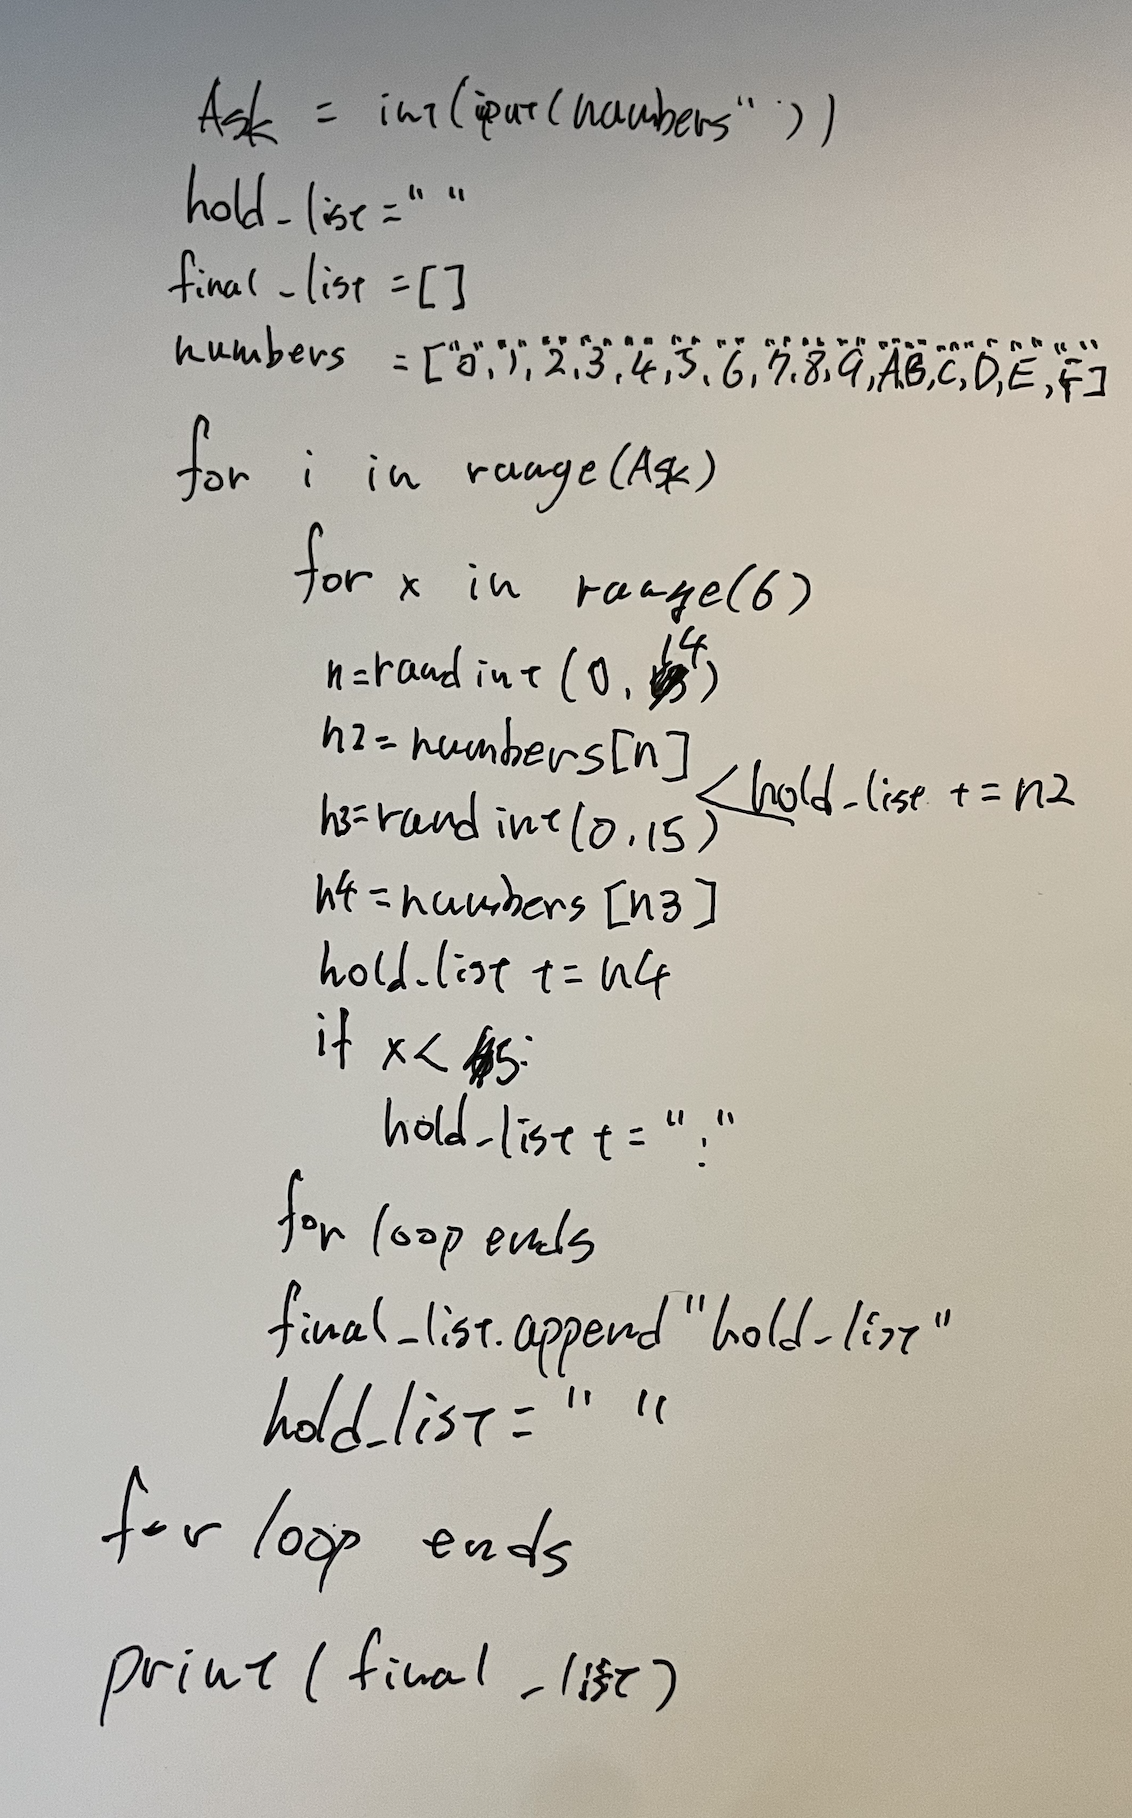 Ask = int(iput(numbers" "))
hold_list=" "
final_list =[]
numbers =["0","1","2","3","4","5","6","7","8","9","A","B","C","D","E","F"]
for i in range(Ask)
for x in range(6)
n=randint(0,14)
n2=numbers[n]
<hold_list += n2
n3=randint(0,15)
n4=numbers[n3]
hold_list += n4
if x<5:
hold_list += ":"
for loop ends
final_list.append"hold_list"
hold_list=" "
for loop ends
print(final_list)